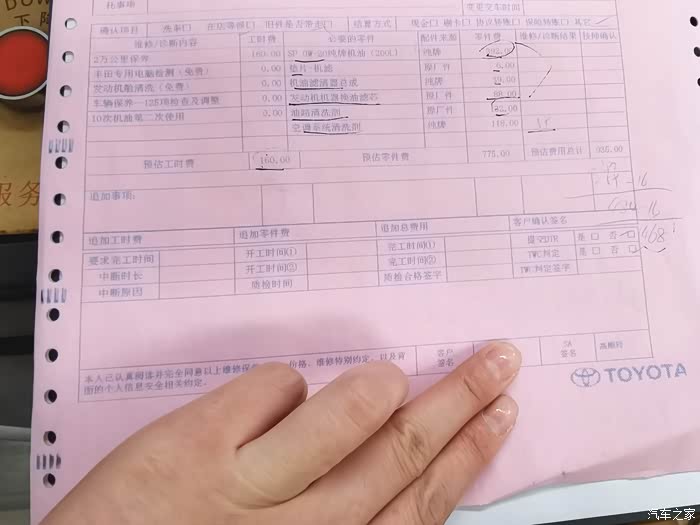 DOW
下降
服务
托事项
变更交车时间
确认项目 洗车口 在店等待口 旧件是否带走口 结算方式 现金口 刷卡口 协议转账口 保险转账口 其它
维修/诊断内容 工时费 必要的零件 配件来源 零件费 维修/诊断结果 技师确认
2万公里保养 160.00 SP 0W-20纯牌机油(200L) 纯牌
丰田专用电脑检测(免费) 0.00 垫片-机油 原厂件
发动机舱清洗(免费) 0.00 机油滤清器总成 原厂件
车辆保养—125项检查及调整 0.00 发动机机器换油滤芯 原厂件
10次机油第二次使用 0.00 油路清洗剂 原厂件
空调系统清洗剂 纯牌
预估工时费 160.00 预估零件费 775.00 预估费用总计 935.00
追加事项:
追加工时费 追加零件费 追加总费用 客户确认签名
要求完工时间 开工时间① 完工时间① 提交DTR 是口 否口
中断时长 开工时间② 完工时间② TWC判定 是口 否口
中断原因 质检时间 质检合格签字 TWC判定签字
本人已认真阅读并完全同意以上维修 价格、维修特别约定、以及背
面的个人信息安全相关约定。
客户
签名
SA
签名
TOYOTA
汽车之家